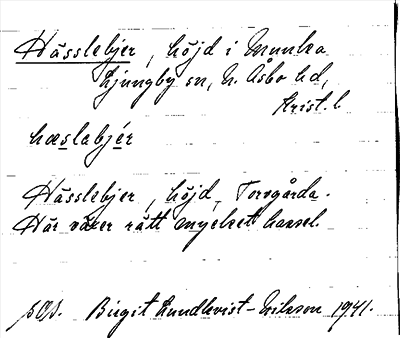 Hässlebjer, höjd i Munka
Ljungby sn, N. Åsbo hd,
Krist. l
hæslabjér
Hässlebjer, höjd, Torvgårda.
Här växer rätt mycket hassel.
Birgit Lundkvist-Eriksson 1941.